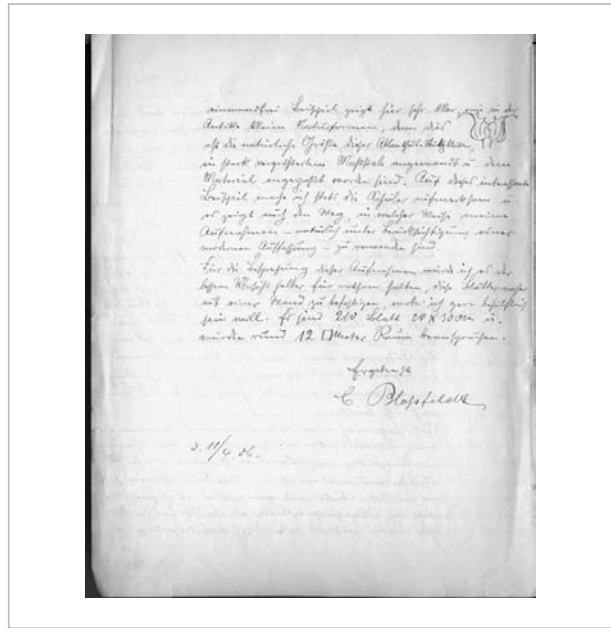 einwandfrei Beispiel zeigt hier sehr klar, wie in der
Antike kleine Naturformen, denn dies
ist die natürliche Größe dieser
in stark vergrößertem Maßstab angewandt u. dem
Material angepaßt worden sind. Auf dieses interessante
Beispiel mache ich stets die Schüler aufmerksam u.
es zeigt auch den Weg, in welcher Weise meine
Aufnahmen – natürlich unter Berücksichtigung einer
modernen Auffassung – zu verwenden sind.
Für die Besprechung dieser Aufnahmen würde ich es der
bessern Übersicht halber für rathsam halten, diese Blätter vorher
auf einer Wand zu befestigen, wobei ich gern behülflich
sein will. Es sind 210 Blatt 24 x 30 cm u.
würden rund 12 □Meter Raum beanspruchen.
Ergebenst
C Bloßfeldt
d. 11/4. 06.